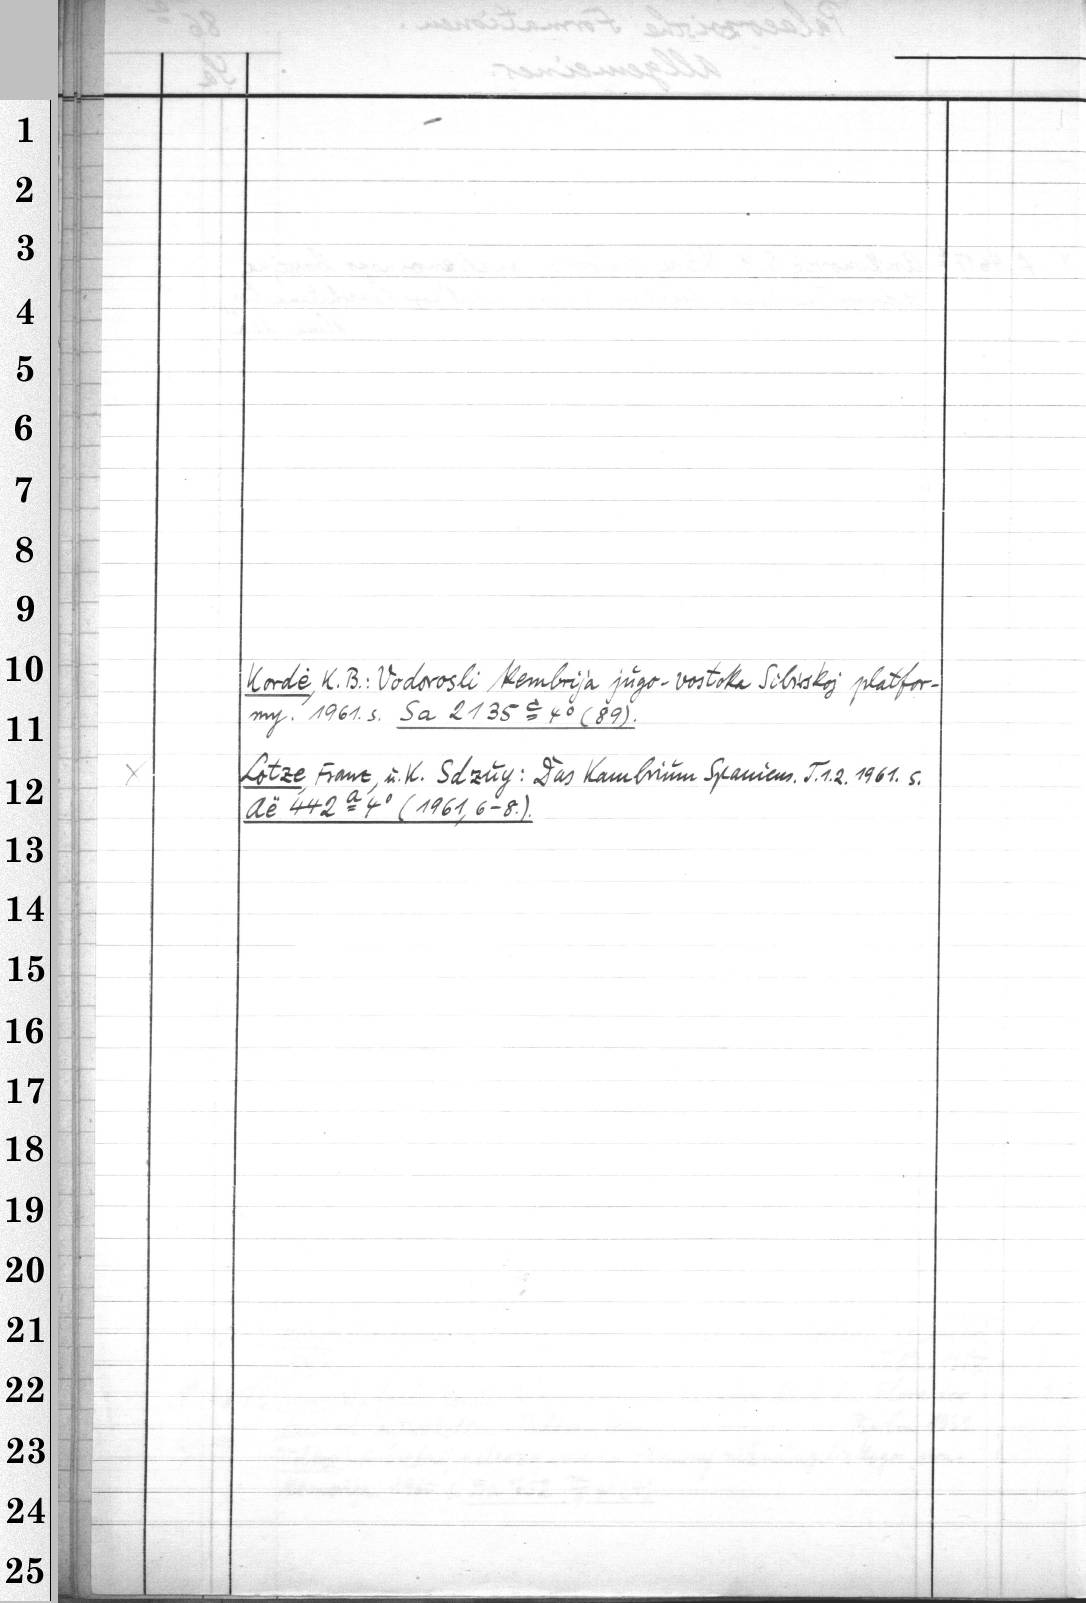 1
2
3
4
5
6
7
8
9
10
Kordė, K.B.: Vodorosli kembrija jugo-vostoka Sibirskoj platfor-
my. 1961. s. Sa 2135 c 4° (89).
11
× Lotze, Franz, u. K. Sdzuy: Das Kambrium Spaniens. T.1.2. 1961. s.
12
Aë 442 a 4° (1961, 6-8.).
13
14
15
16
17
18
19
20
21
22
23
24
25